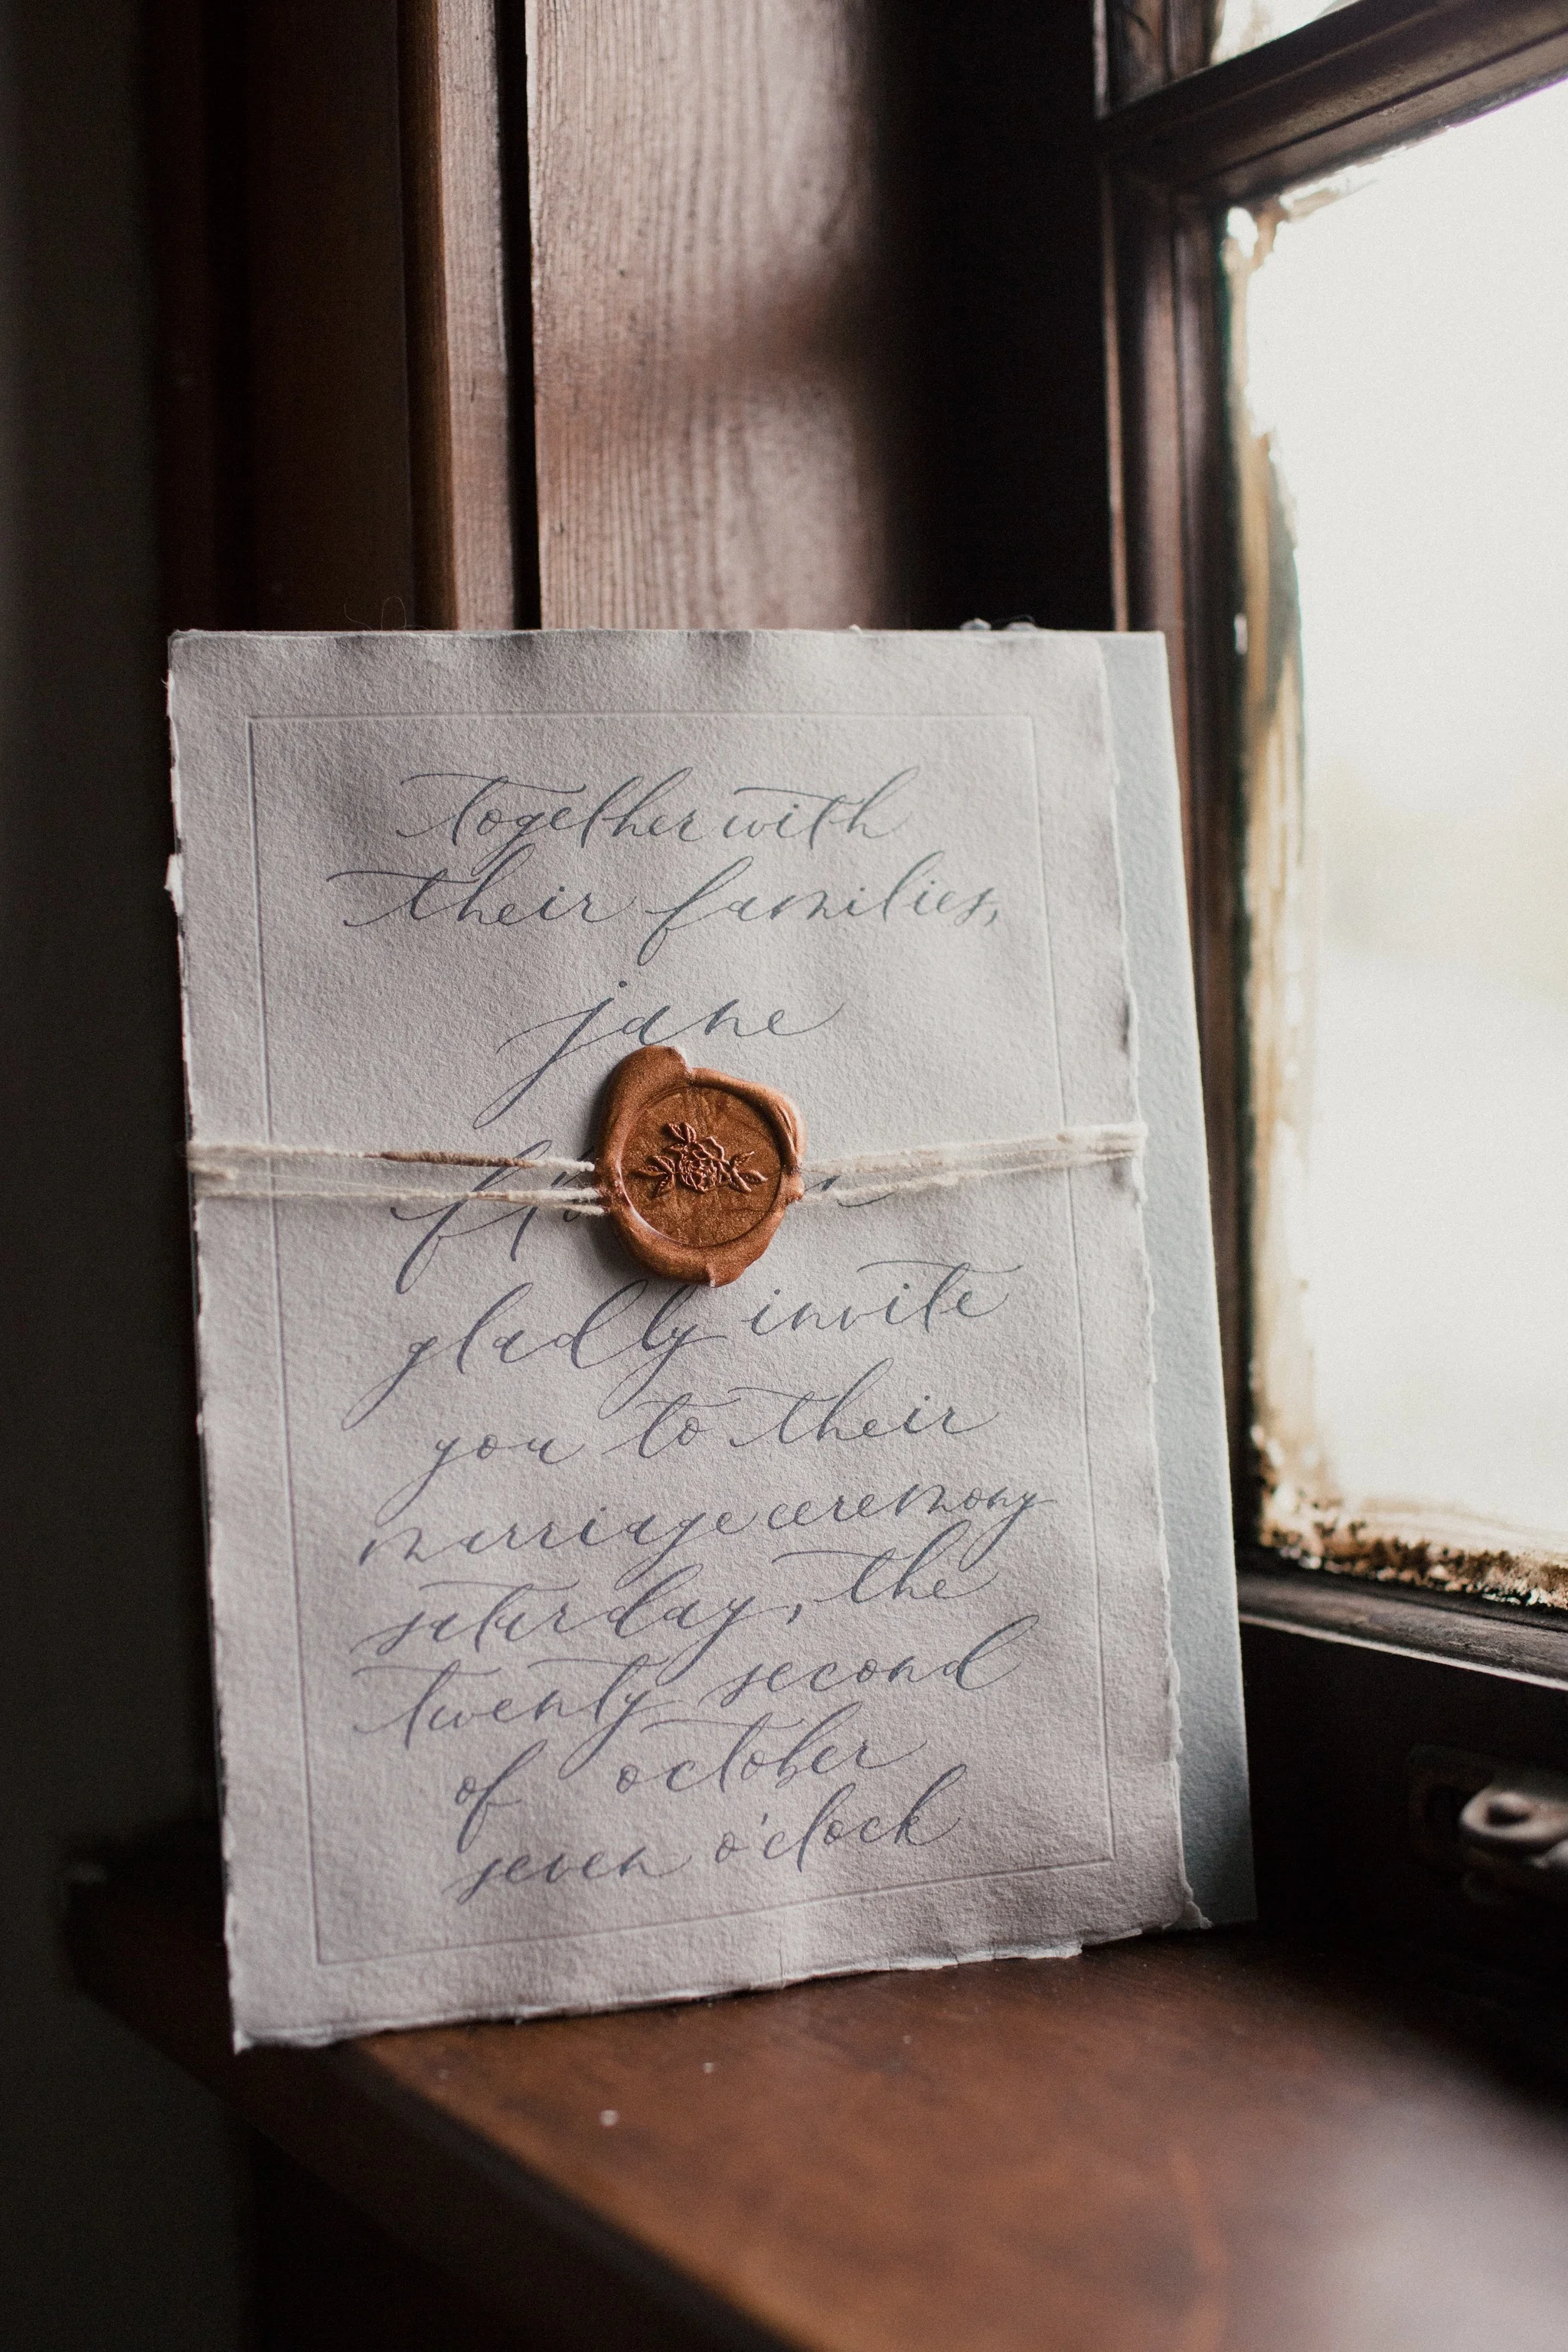 together with
their families,
jane
gladly invite
you to their
marriage ceremony
saturday, the
twenty second
of october
seven o'clock